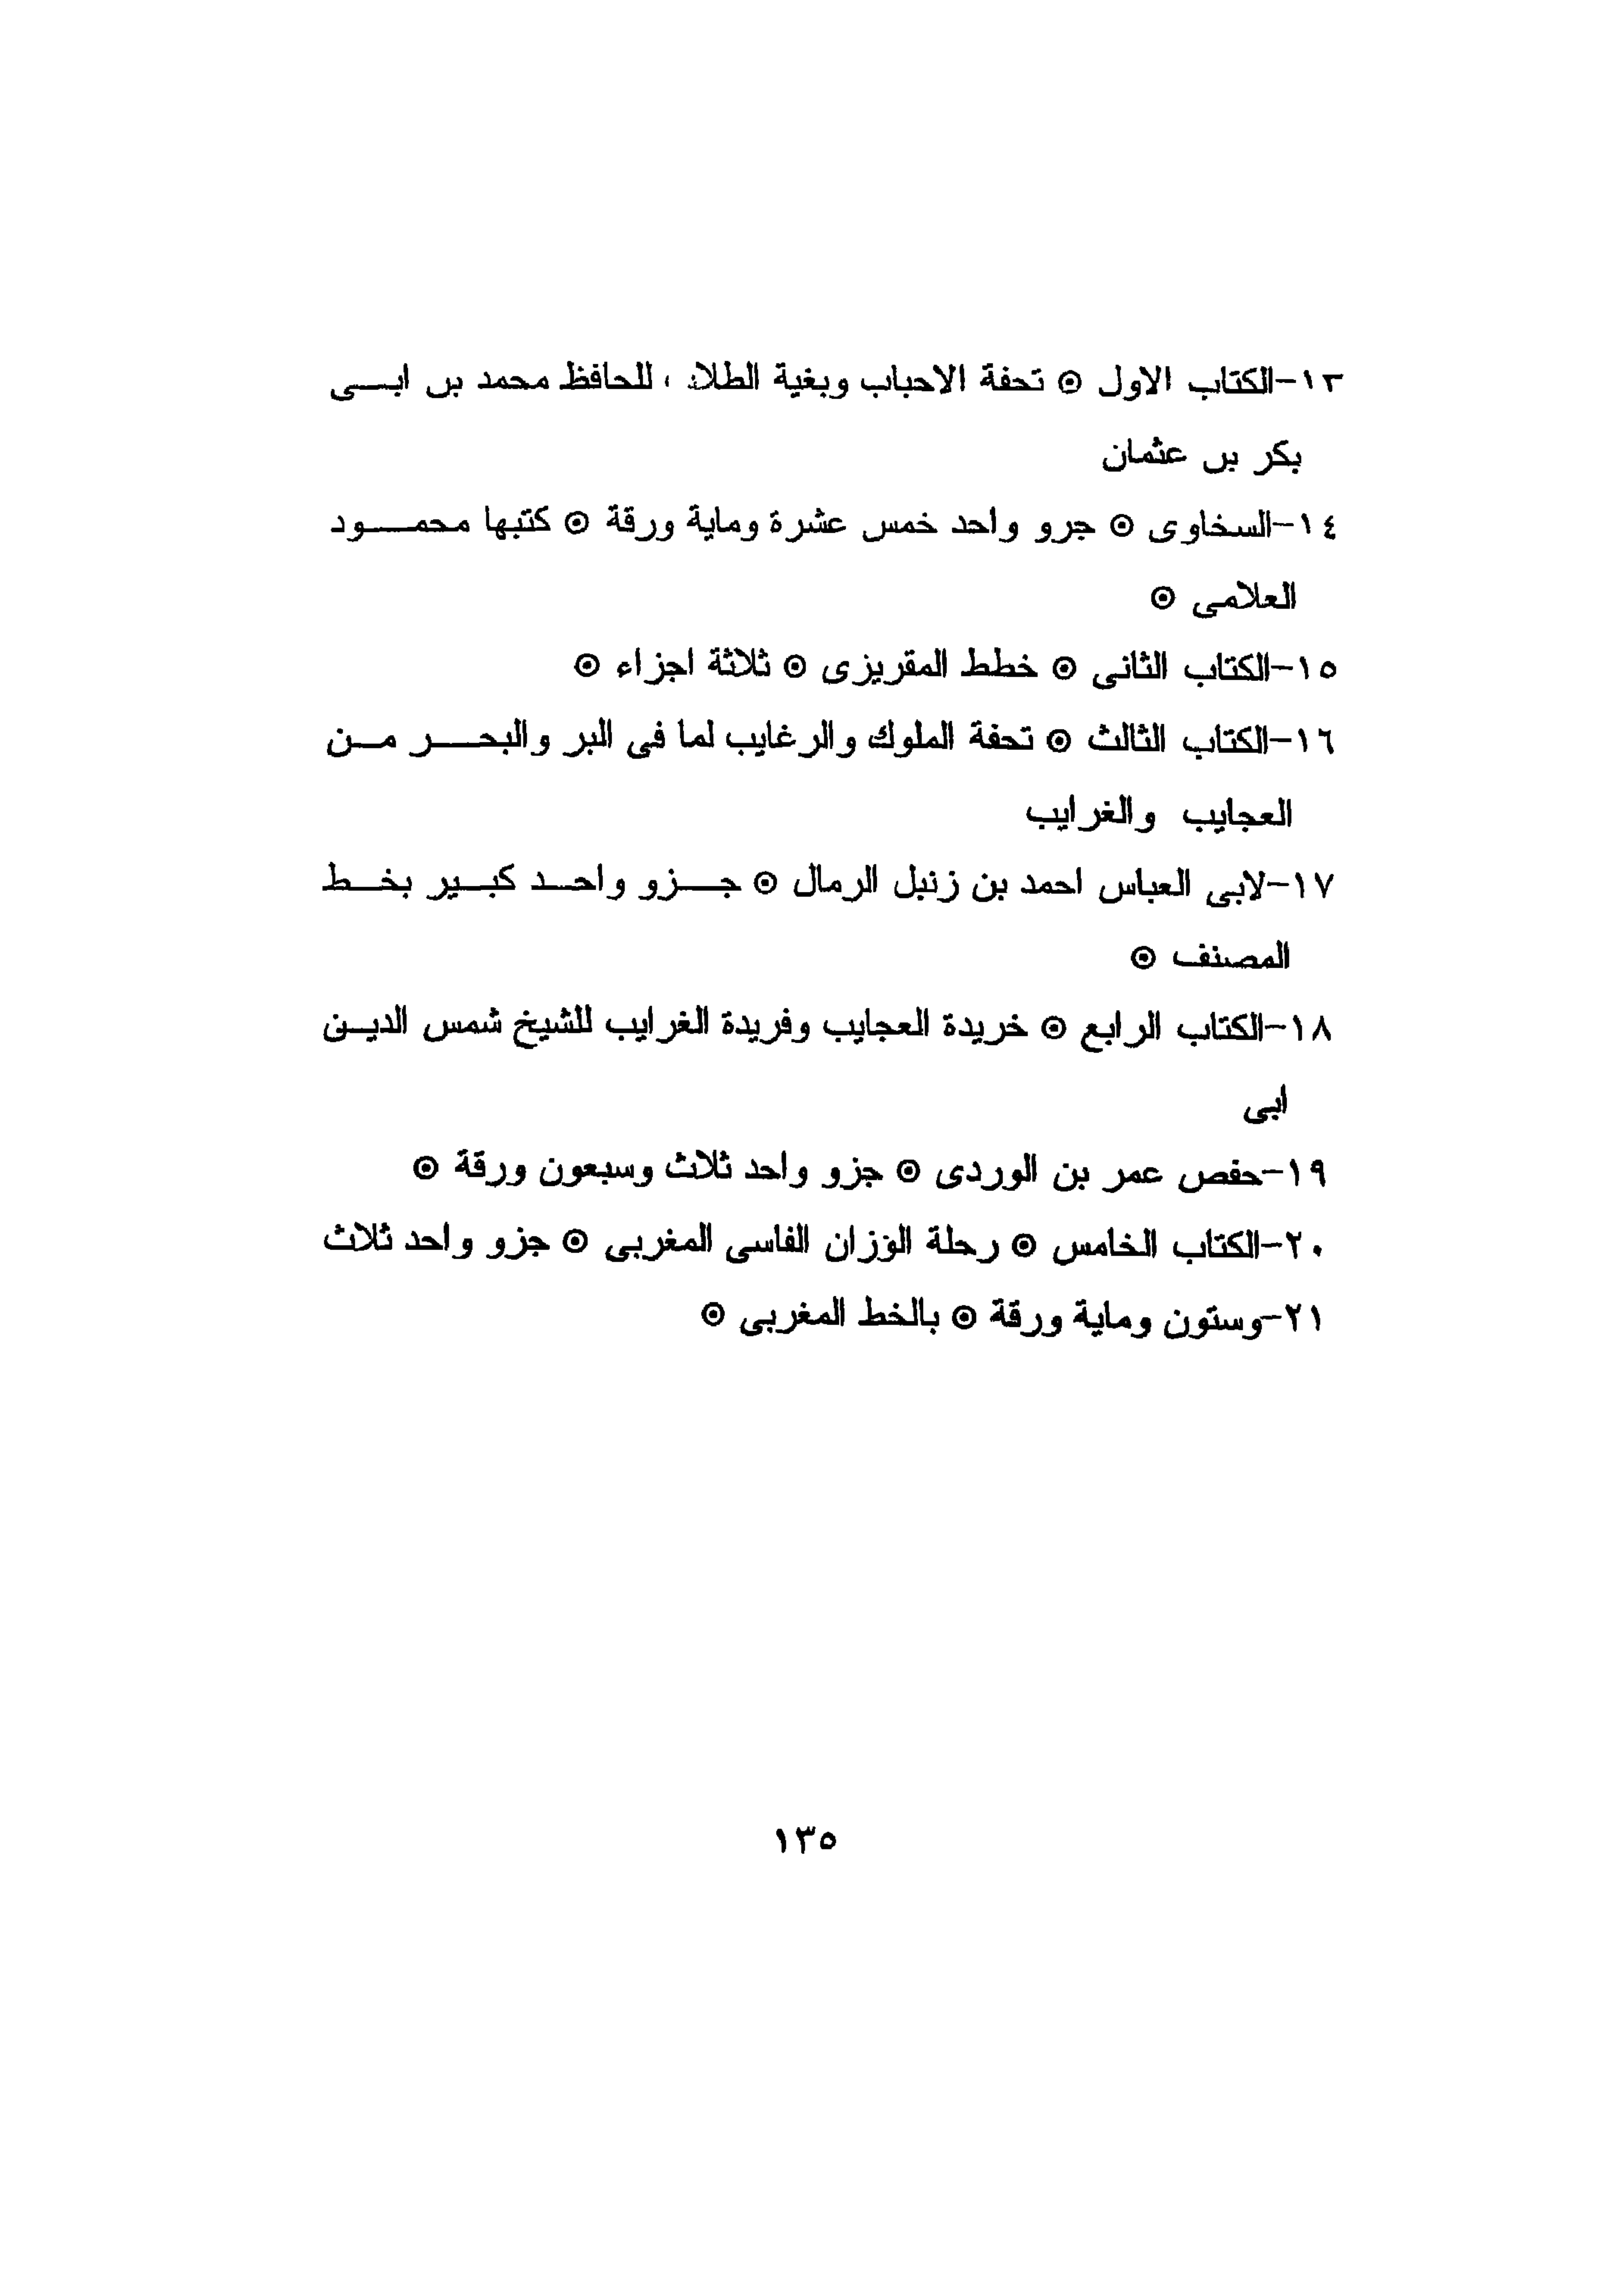 ١٣-الكتاب الاول ⊙ تحفة الاحباب وبغية للحافظ محمد بن ابى
بكر بن عثمان
١٤-السخاوى ⊙ جرو واحد خمس عشرة وماية ورقة ⊙ كتبها محمود
العلامى ⊙
١٥-الكتاب الثانى ⊙ خطط المقريزى ⊙ ثلاثة اجزاء ⊙
١٦-الكتاب الثالث ⊙ تحفة الملوك والرغايب لما فى البر والبحر من
العجايب والغرايب
١٧-لابى العباس احمد بن زنبل الرمال ⊙ جزو واحد كبير بخط
المصنف ⊙
١٨-الكتاب الرابع ⊙ خريدة العجايب وفريدة الغرايب للشيخ شمس الدين
ابى
١٩-حفص عمر بن الوردى ⊙ جزو واحد ثلاث وسبعون ورقة ⊙
٢٠-الكتاب الخامس ⊙ رحلة الوزان الفاسى المغربى ⊙ جزو واحد ثلاث
٢١-وستون وماية ورقة ⊙ بالخط المغربى ⊙
١٣٥